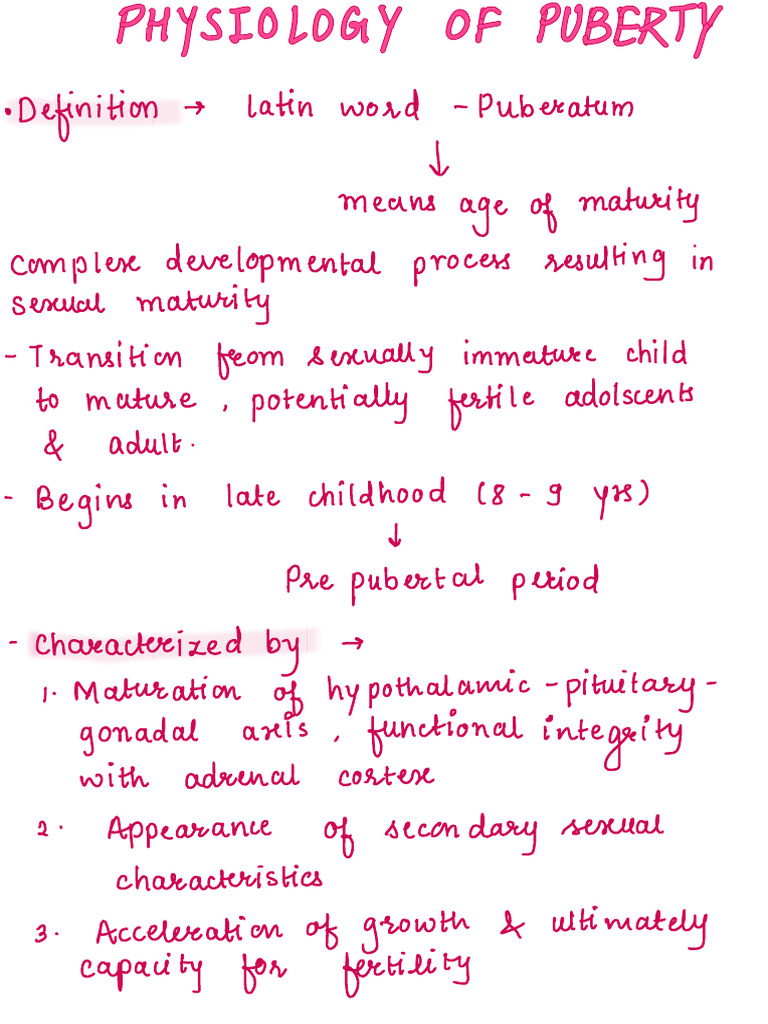 PHYSIOLOGY OF PUBERTY
• Definition → Latin word - Puberatum
↓
means age of maturity
Complex developmental process resulting in
sexual maturity
- Transition from sexually immature child
to mature, potentially fertile adolscents
& adult.
- Begins in late childhood (8 - 9 yrs)
↓
Pre pubertal period
- Characterized by →
1. Maturation of hypothalamic - pituitary -
gonadal axis, functional integrity
with adrenal cortex
2. Appearance of secondary sexual
characteristics
3. Acceleration of growth & ultimately
capacity for fertility